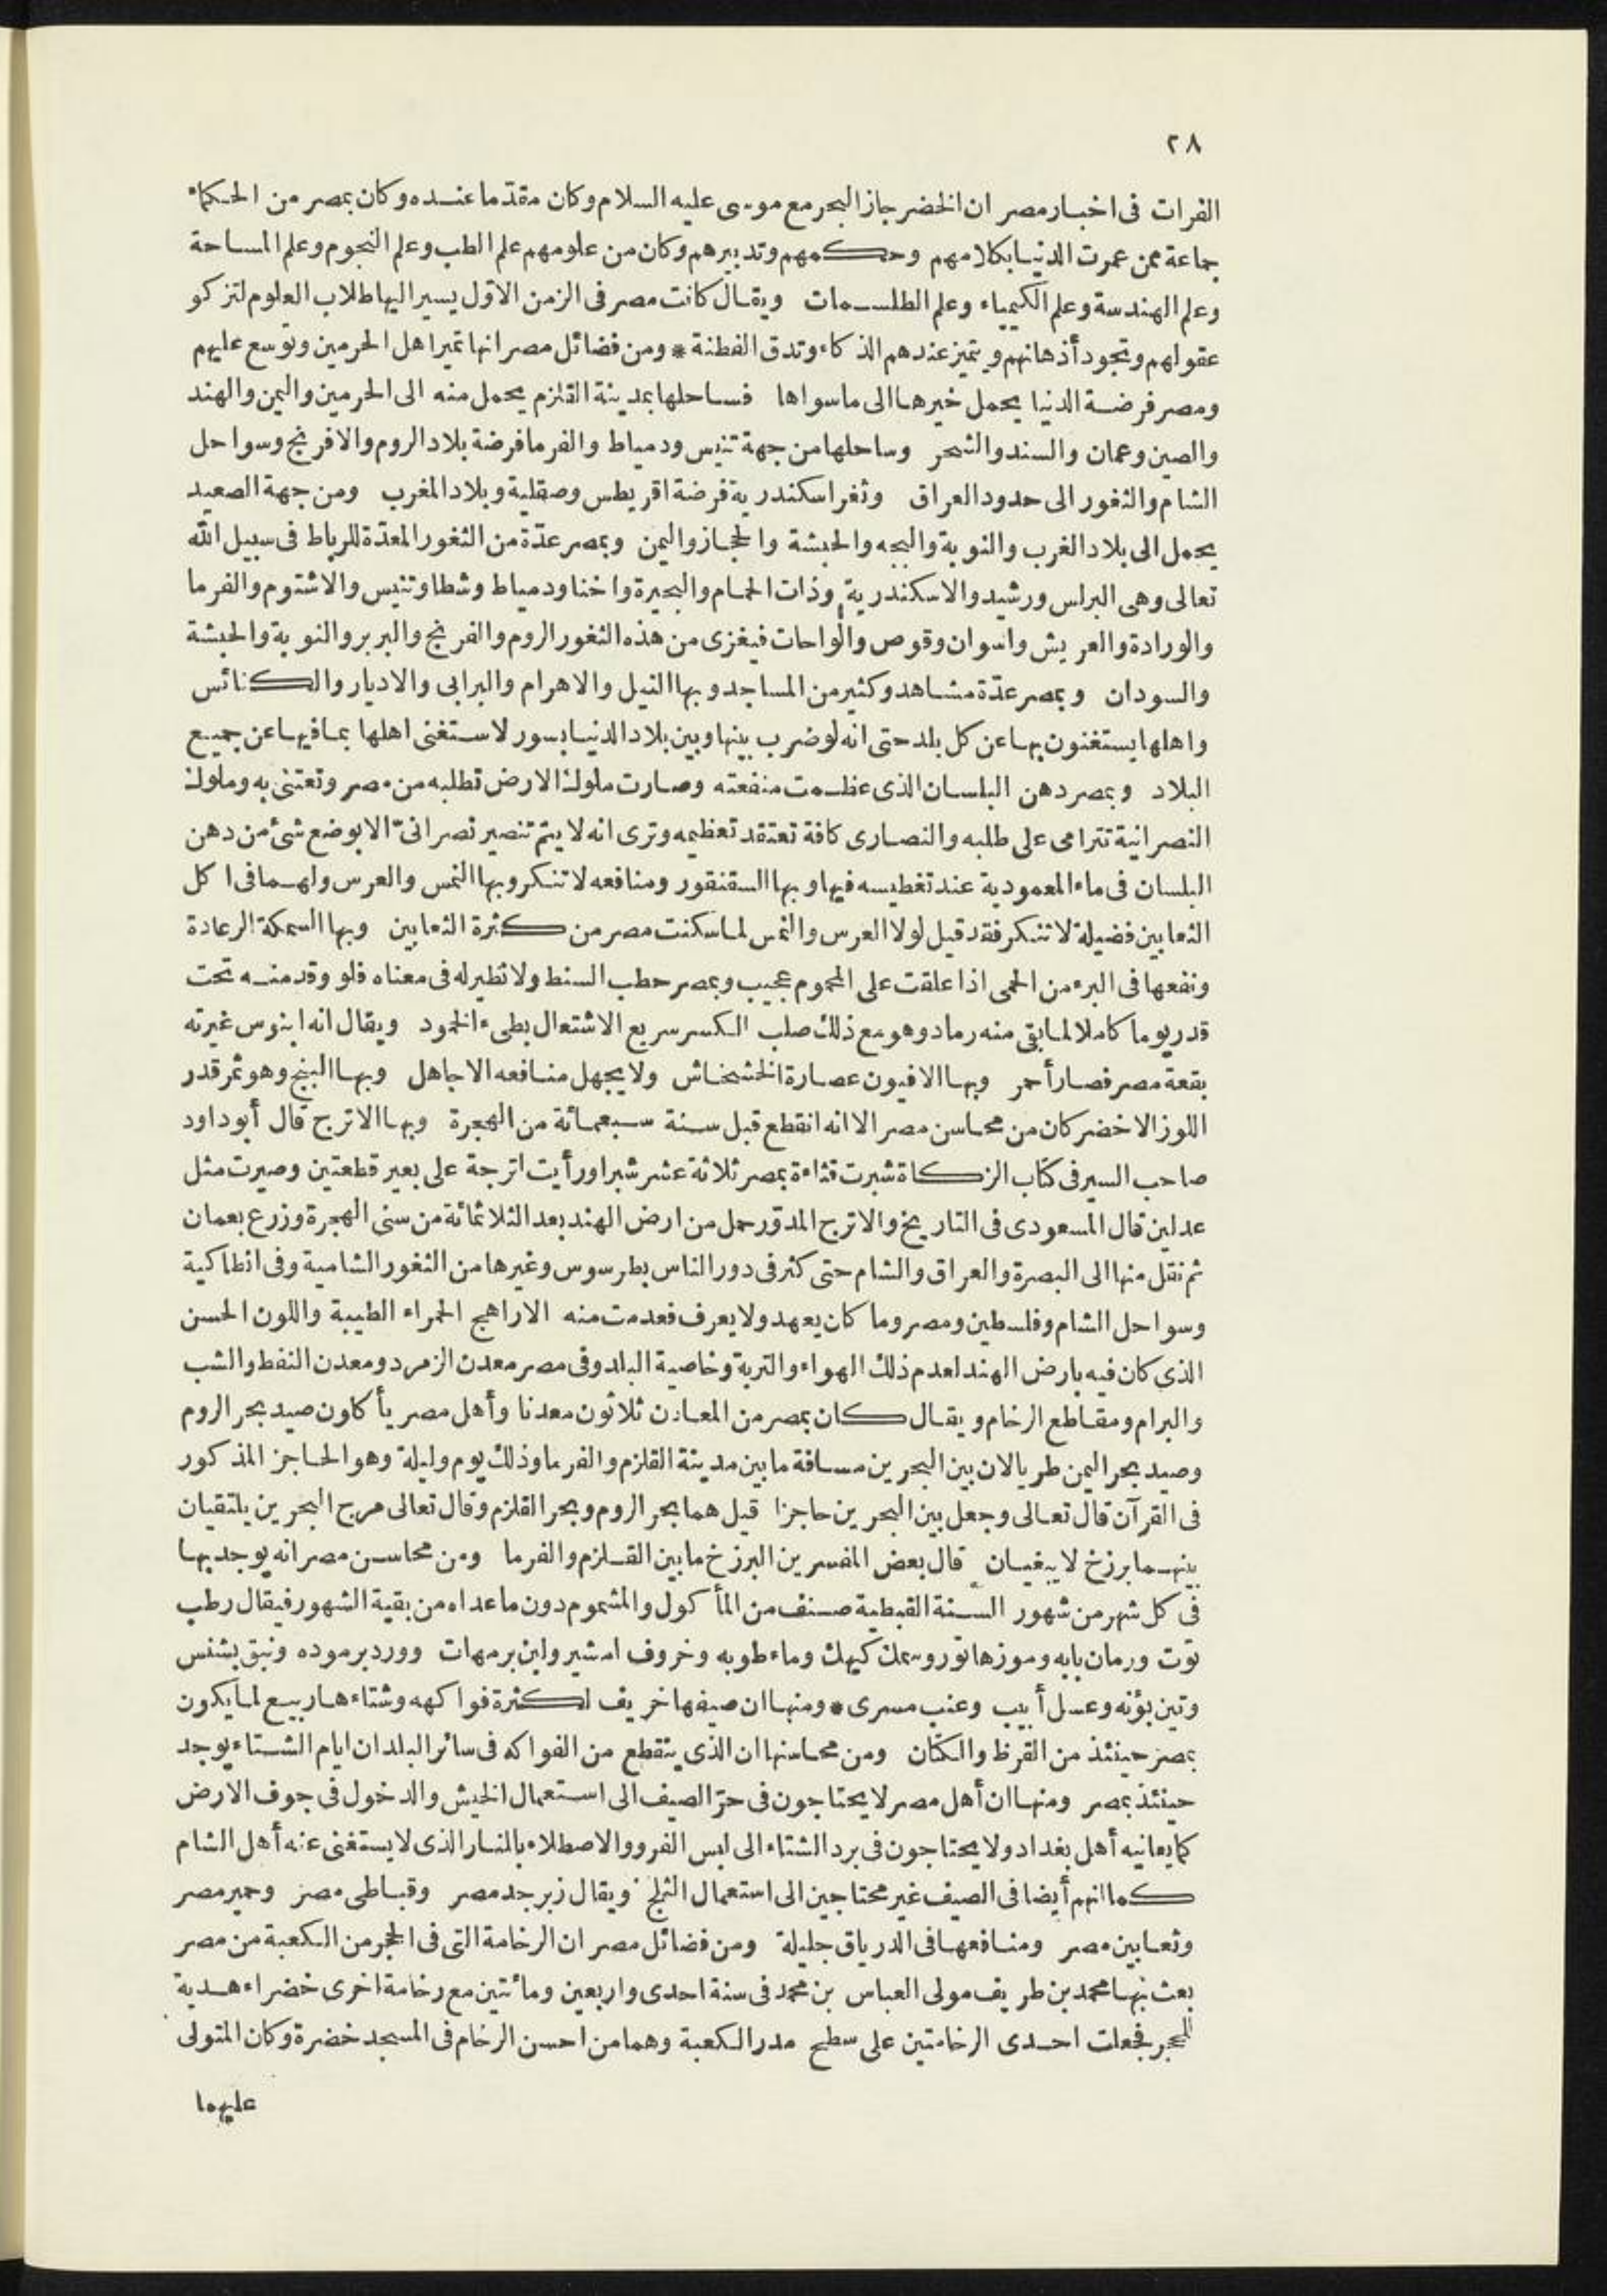 ٢٨
الفرات فى اخبار مصر ان الخضر جاز البحر مع موسى عليه السلام وكان مقدّما عنده وكان بمصر من الحكماء
جماعة ممن عمرت الدنيا بكلامهم وحكمهم وتدبيرهم وكان من علومهم علم الطب وعلم النجوم وعلم المساحة
وعلم الهندسة وعلم الكيمياء وعلم الطلسمات ويقال كانت مصر فى الزمن الاوّل يسير اليها طلاب العلوم لتزكو
عقولهم وتجود أذهانهم ويتميز عندهم الذكاء وتدق الفطنة * ومن فضائل مصر انها تمير اهل الحرمين وتوسع عليهم
ومصر فرضة الدنيا يحمل خيرها الى ما سواها فساحلها بمدينة القلزم يحمل منه الى الحرمين واليمن والهند
والصين وعمان والسند والشحر وساحلها من جهة تنيس ودمياط والفرما فرضة بلاد الروم والافرنج وسواحل
الشام والثغور الى حدود العراق وثغر اسكندرية فرضة اقريطس وصقلية وبلاد المغرب ومن جهة الصعيد
يحمل الى بلاد الغرب والنوبة والبجه والحبشة والحجاز واليمن وبمصر عدّة من الثغور المعدّة للرباط فى سبيل الله
تعالى وهى البرلس ورشيد والاسكندرية وذات الحمام والبحيرة واخنا ودمياط وشطا وتنيس والاشتوم والفرما
والورادة والعريش واسوان وقوص والواحات فيغزى من هذه الثغور الروم والفرنج والبربر والنوبة والحبشة
والسودان وبمصر عدّة مشاهد وكثير من المساجد وبها النيل والاهرام والبرابى والاديار والكنائس
واهلها يستغنون بها عن كل بلد حتى انه لو ضرب بينها وبين بلاد الدنيا بسور لاستغنى اهلها بما فيها عن جميع
البلاد وبمصر دهن البلسان الذى عظمت منفعته وصارت ملوك الارض تطلبه من مصر وتعتنى به وملوك
النصرانية تترامى على طلبه والنصارى كافة تعتقد تعظيمه وترى انه لا يتم تنصير نصرانىّ الا بوضع شئ من دهن
البلسان فى ماء المعمودية عند تغطيسه فيها وبها السقنقور ومنافعه لا تنكر وبها النمس والعرس ولهما فى اكل
الثعابين فضيلة لا تنكر فقد قيل لولا العرس والنمس لما سكنت مصر من كثرة الثعابين وبها السمكة الرعادة
ونفعها فى البرء من الحمى اذا علقت على المحموم عجيب وبمصر حطب السنط ولا نظير له فى معناه فلو وقد منه تحت
قدر يوما كاملا لما بقى منه رماد وهو مع ذلك صلب الكسر سريع الاشتعال بطىء الخمود ويقال انه ابنوس غيرته
بقعة مصر فصار أحمر وبها الافيون عصارة الخشخاش ولا يجهل منافعه الا جاهل وبها البنج وهو ثمر قدر
اللوز الاخضر كان من محاسن مصر الا انه انقطع قبل سنة سبعمائة من الهجرة وبها الاترج قال أبو داود
صاحب السير فى كتاب الزكاة شبرت قثاءة بمصر ثلاثة عشر شبرا ورأيت اترجة على بعير قطعتين وصيرت مثل
عدلين قال المسعودى فى التاريخ والاترج المدوّر حمل من ارض الهند بعد الثلاثمائة من سنى الهجرة وزرع بعمان
ثم نقل منها الى البصرة والعراق والشام حتى كثر فى دور الناس بطرسوس وغيرها من الثغور الشامية وفى انطاكية
وسواحل الشام وفلسطين ومصر وما كان يعهد ولا يعرف فعدمت منه الاراهج الحمراء الطيبة واللون الحسن
الذى كان فيه بارض الهند لعدم ذلك الهواء والتربة وخاصية البلد وفى مصر معدن الزمرد ومعدن النفط والشب
والبرام ومقاطع الرخام ويقال كان بمصر من المعادن ثلاثون معدنا وأهل مصر يأكلون صيد بحر الروم
وصيد بحر اليمن طريا لان بين البحرين مسافة ما بين مدينة القلزم والفرما وذلك يوم وليلة وهو الحاجز المذكور
فى القرآن قال تعالى وجعل بين البحرين حاجزا قيل هما بحر الروم وبحر القلزم وقال تعالى مرج البحرين يلتقيان
بينهما برزخ لا يبغيان قال بعض المفسرين البرزخ ما بين القلزم والفرما ومن محاسن مصر انه يوجد بها
فى كل شهر من شهور السنة القبطية صنف من المأكول والمشموم دون ما عداه من بقية الشهور فيقال رطب
توت ورمان بابه وموز هاتور وسمك كيهك وماء طوبه وخروف امشير ولبن برمهات وورد برموده ونبق بشنس
وتين بؤنه وعسل أبيب وعنب مسرى * ومنها ان صيفها خريف لكثرة فواكهه وشتاءها ربيع لما يكون
بمصر حينئذ من القرظ والكتّان ومن محاسنها ان الذى ينقطع من الفواكه فى سائر البلدان ايام الشتاء يوجد
حينئذ بمصر ومنها ان أهل مصر لا يحتاجون فى حرّ الصيف الى استعمال الخيش والدخول فى جوف الارض
كما يعانيه أهل بغداد ولا يحتاجون فى برد الشتاء الى لبس الفرو والاصطلاء بالنار الذى لا يستغنى عنه أهل الشام
كما انهم أيضا فى الصيف غير محتاجين الى استعمال الثلج ويقال زبرجد مصر وقباطى مصر وحمير مصر
وثعابين مصر ومنافعها فى الدرياق جليلة ومن فضائل مصر ان الرخامة التى فى الحجر من الكعبة من مصر
بعث بها محمد بن طريف مولى العباس بن محمد فى سنة احدى واربعين ومائتين مع رخامة اخرى خضراء هدية
للحجر فجعلت احدى الرخامتين على سطح مدر الكعبة وهما من احسن الرخام فى المسجد خضرة وكان المتولى
عليهما